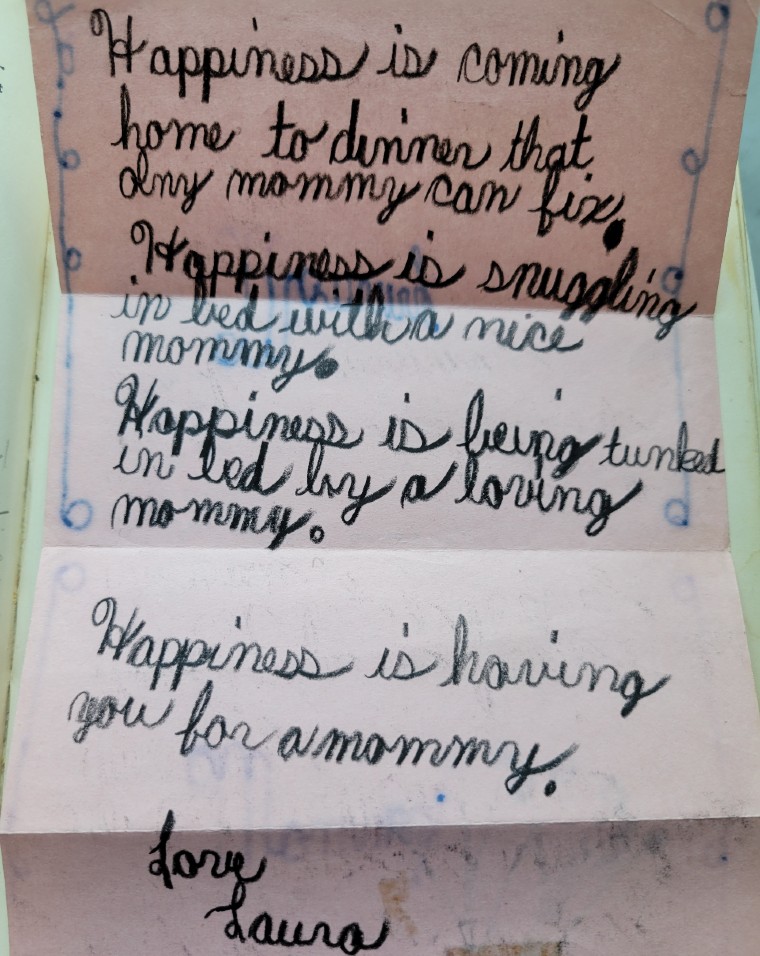 Happiness is coming
home to dinner that
only mommy can fix.
Happiness is snuggling
in bed with a nice
mommy.
Happiness is being tunked
in bed by a loving
mommy.
Happiness is having
you for a mommy.
Love
Laura